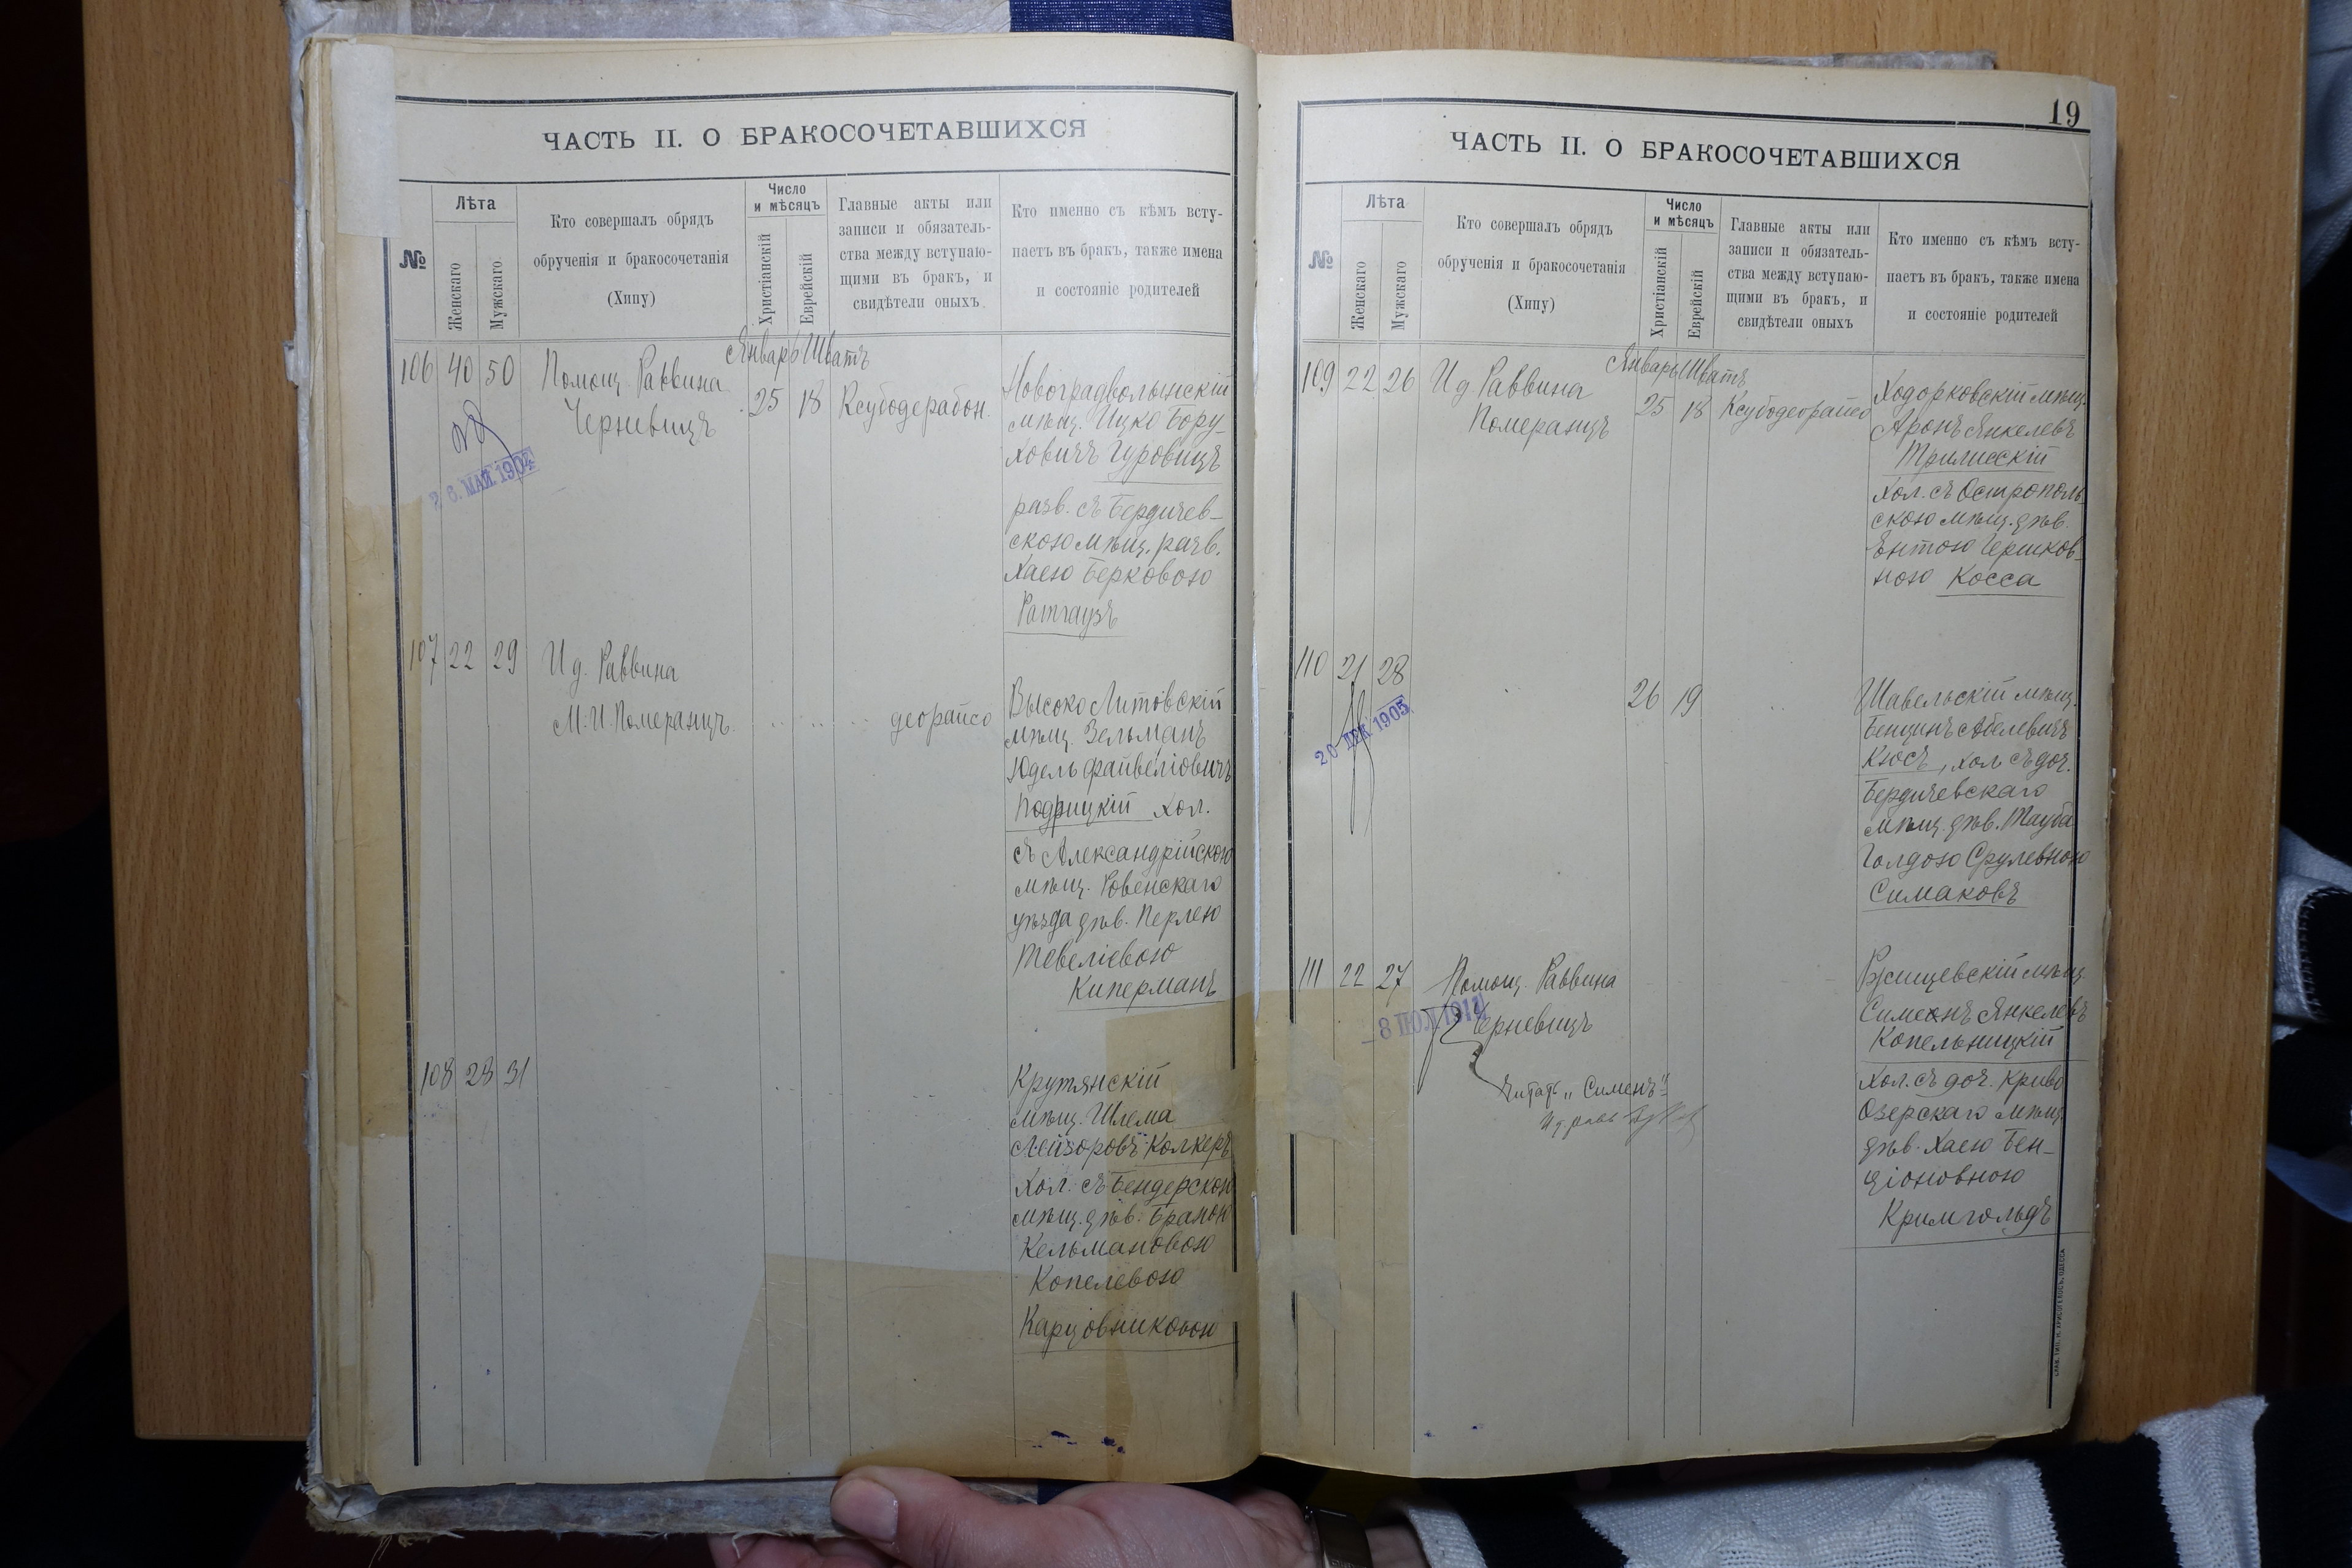 ЧАСТЬ II. О БРАКОСОЧЕТАВШИХСЯ
№
Лѣта
Женскаго
Мужскаго
Кто совершалъ обрядъ
обрученія и бракосочетанія
(Хипу)
Число
и мѣсяцъ
Христіанскій
Еврейскій
Главные акты или
записи и обязатель-
ства между вступаю-
щими въ бракъ, и
свидѣтели оныхъ
Кто именно съ кѣмъ всту-
паетъ въ бракъ, также имена
и состояніе родителей
106 40 50
Помощ. Раввина
Черневицъ
Январь Шватъ
25 18
Ксубодерабон.
Новоградволынскій
мѣщ. Ицко Бору-
ховичъ Гуровицъ
разв. съ Бердичев-
скою мѣщ. разв.
Хаею Берковою
Ратгаузъ
26. МАЙ. 1904
107 22 29
И д. Раввина
М. И. Померанцъ.
деорайсо
Высоко Литовскій
мѣщ. Зельманъ
Юдель Файвеліовичъ
Подрицкій хол.
съ Александрійскою
мѣщ. Ровенскаго
уѣзда дѣв. Перлею
Тевеліевою
Киперманъ
108 28 31
Крутянскій
мѣщ. Шлема
Лейзоровъ Колкеръ
хол. съ Бендерскою
мѣщ. дѣв.
Кельмановою
Копелевою
19
ЧАСТЬ II. О БРАКОСОЧЕТАВШИХСЯ
№
Лѣта
Женскаго
Мужскаго
Кто совершалъ обрядъ
обрученія и бракосочетанія
(Хипу)
Число
и мѣсяцъ
Христіанскій
Еврейскій
Главные акты или
записи и обязатель-
ства между вступаю-
щими въ бракъ, и
свидѣтели оныхъ
Кто именно съ кѣмъ всту-
паетъ въ бракъ, также имена
и состояніе родителей
109 22 26
И д. Раввина
Померанцъ
Январь Шватъ
25 18
Ксубодеорайсо
Ходорковскій мѣщ.
Аронъ Янкелевъ
Трилисскій
хол. съ Острополь
скою мѣщ. дѣв.
Ентою Гершков-
ною Косса
110 21 28
26 19
20 ДЕК 1905
Шавельскій мѣщ.
Бенцинъ Абелевичъ
Кюсъ, хол съ доч.
Бердичевскаго
мѣщ. дѣв. Тауба
Голдою Срулевною
Симаковъ
111 22 27
Помощ. Раввина
Черневицъ
Читать „Сименъ"
Симеонъ Янкелевъ
Копельницкій
хол. съ доч. Криво
Озерскаго мѣщ.
дѣв. Хаею Бен-
ціоновною
Кримгольдъ